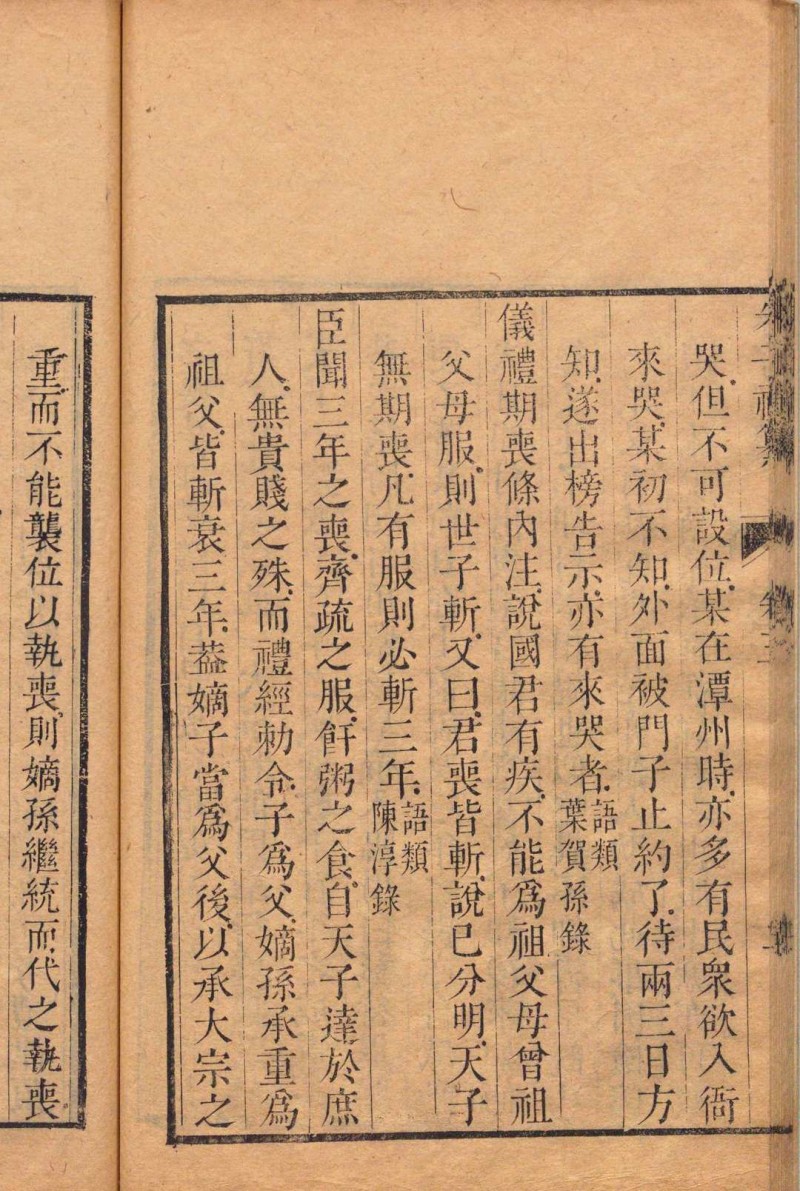 哭但不可設位某在潭州時亦多有民衆欲入衙
來哭某初不知外面被門子止約了待兩三日方
知遂出榜告示亦有來哭者語類葉賀孫錄
儀禮期喪條內注說國君有疾不能爲祖父母曾祖
父母服則世子斬又曰君喪皆斬說已分明天子
無期喪凡有服則必斬三年語類陳淳錄
臣聞三年之喪齊疏之服飦粥之食自天子達於庶
人無貴賤之殊而禮經勅令子爲父嫡孫承重爲
祖父皆斬衰三年葢嫡子當爲父後以承大宗之
重而不能襲位以執喪則嫡孫繼統而代之執喪